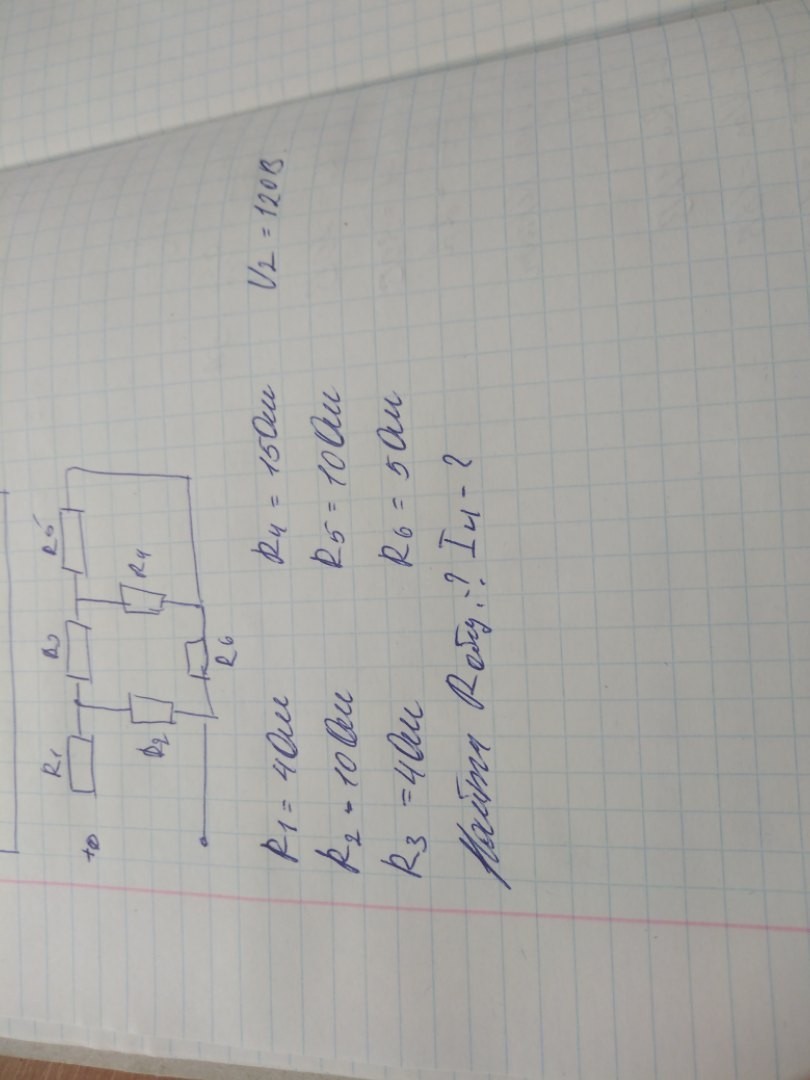 R1 R3 R5
+
R2 R4
R6
R1 = 4Ом R4 = 15Ом U2 = 120В
R2 = 10Ом R5 = 10Ом
R3 = 4Ом R6 = 5Ом
Найти Rобщ.-? I4 - ?